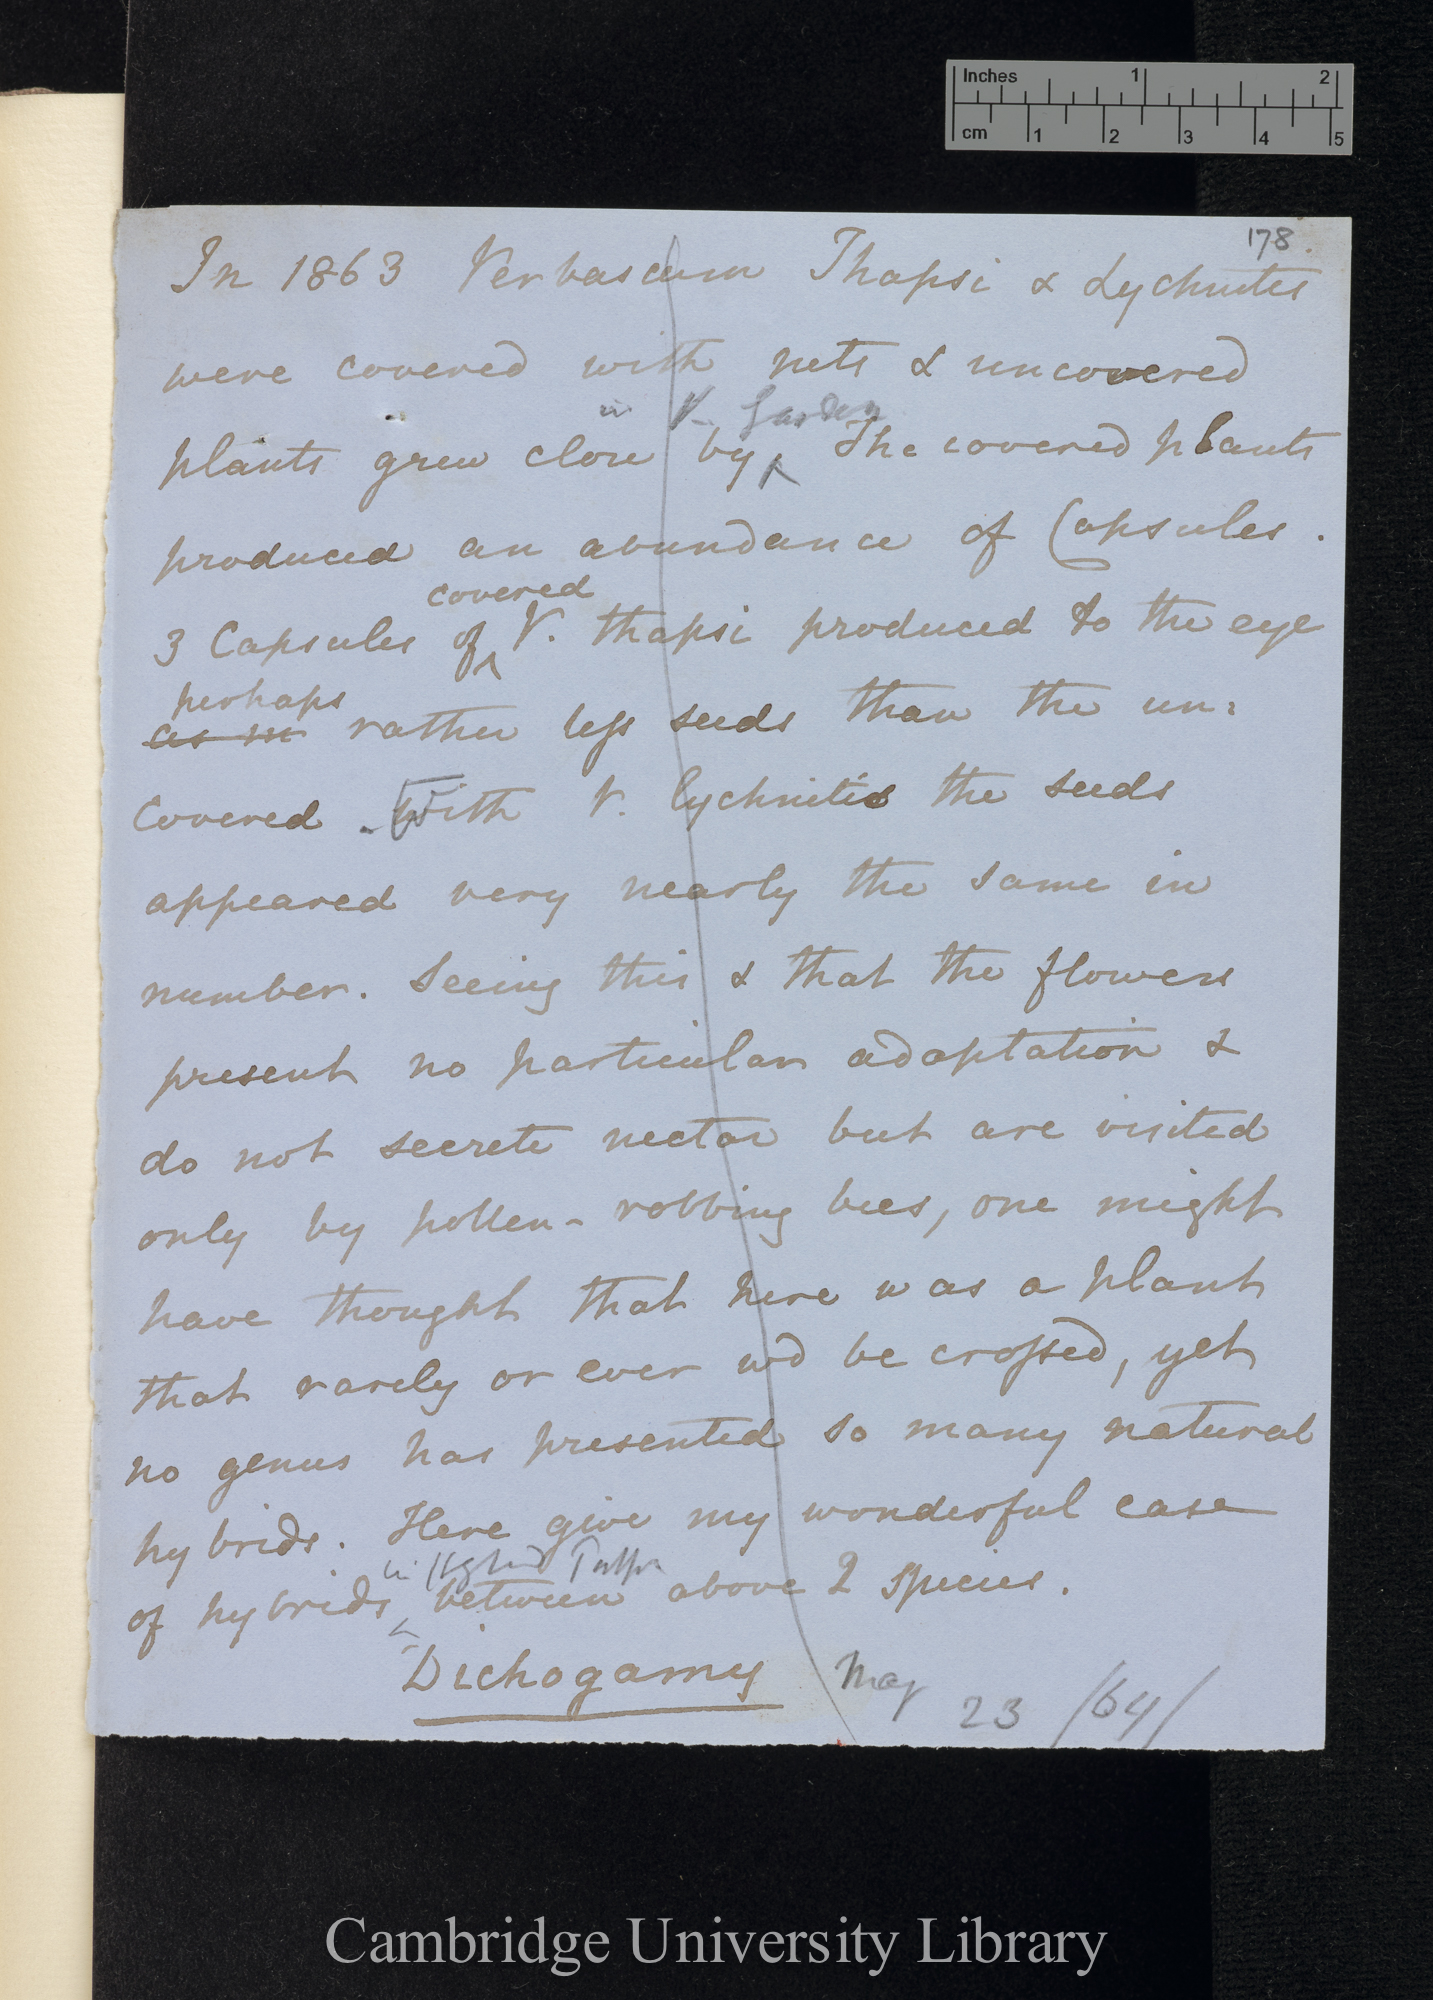 Inches 1 2
cm 1 2 3 4 5
178.
In 1863 Verbascum Thapsi & Lychnitis
were covered with nets & uncovered
in K. Garden
plants grew close by. The covered plants
produced an abundance of Capsules.
covered
3 Capsules of V. thapsi produced to the eye
perhaps
as in rather less seeds than the un=
covered. With V. lychnitis the seeds
appeared very nearly the same in
number. Seeing this & that the flowers
present no particular adaptation &
do not secrete nectar but are visited
only by pollen-robbing bees, one might
have thought that here was a plant
that rarely or ever wd be crossed, yet
no genus has presented so many natural
hybrids. Here give my wonderful case
in
of hybrids between above 2 species.
Dichogamy May 23 /64/
Cambridge University Library